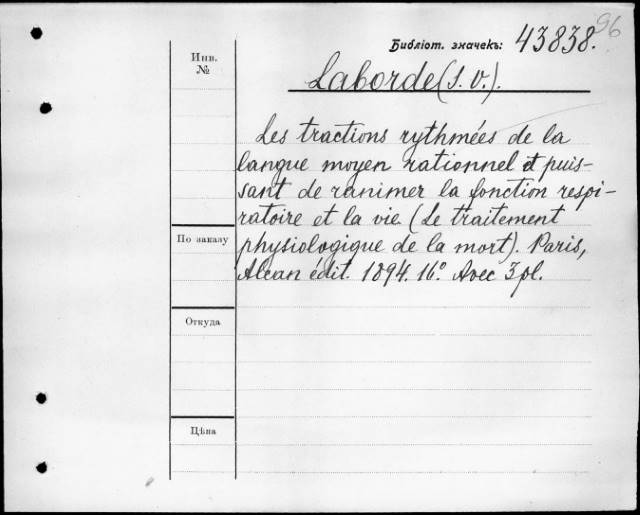 96
Библіот. значекъ: 43838.
Инв.
№
Laborde (J. V.).
Les tractions rythmées de la
langue moyen rationnel et puis-
sant de ranimer la fonction respi-
ratoire et la vie (Le traitement
По заказу
physiologique de la mort). Paris,
Alcan édit. 1894. 16º. Avec 3 pl.
Откуда
Цѣна